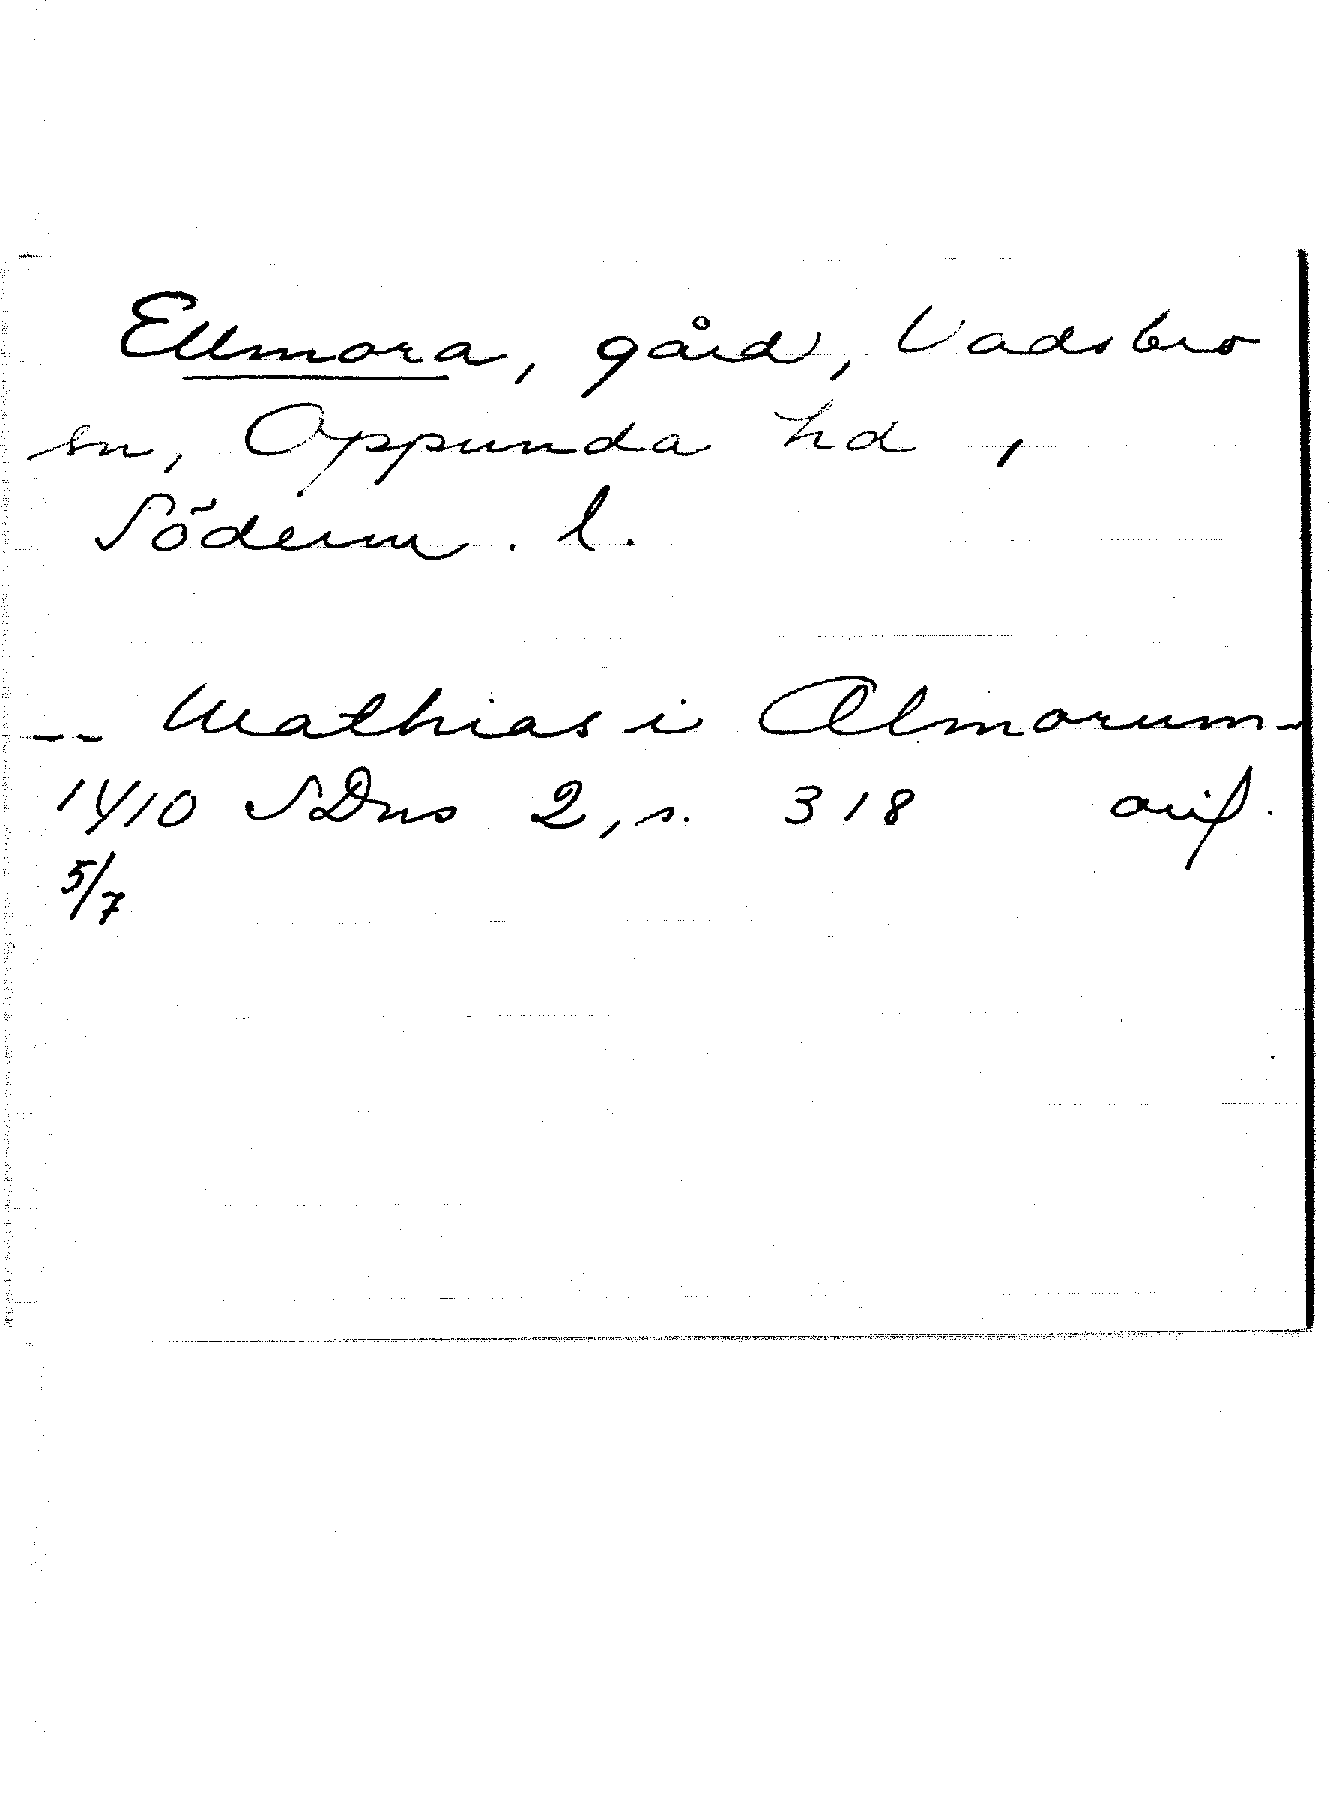 Ellmora, gård, Vadsbro
sn, Oppunda hd,
Söderm. l.
-- Mathias i Almorum -
1410 SDns 2, s. 318 avs.
5/7